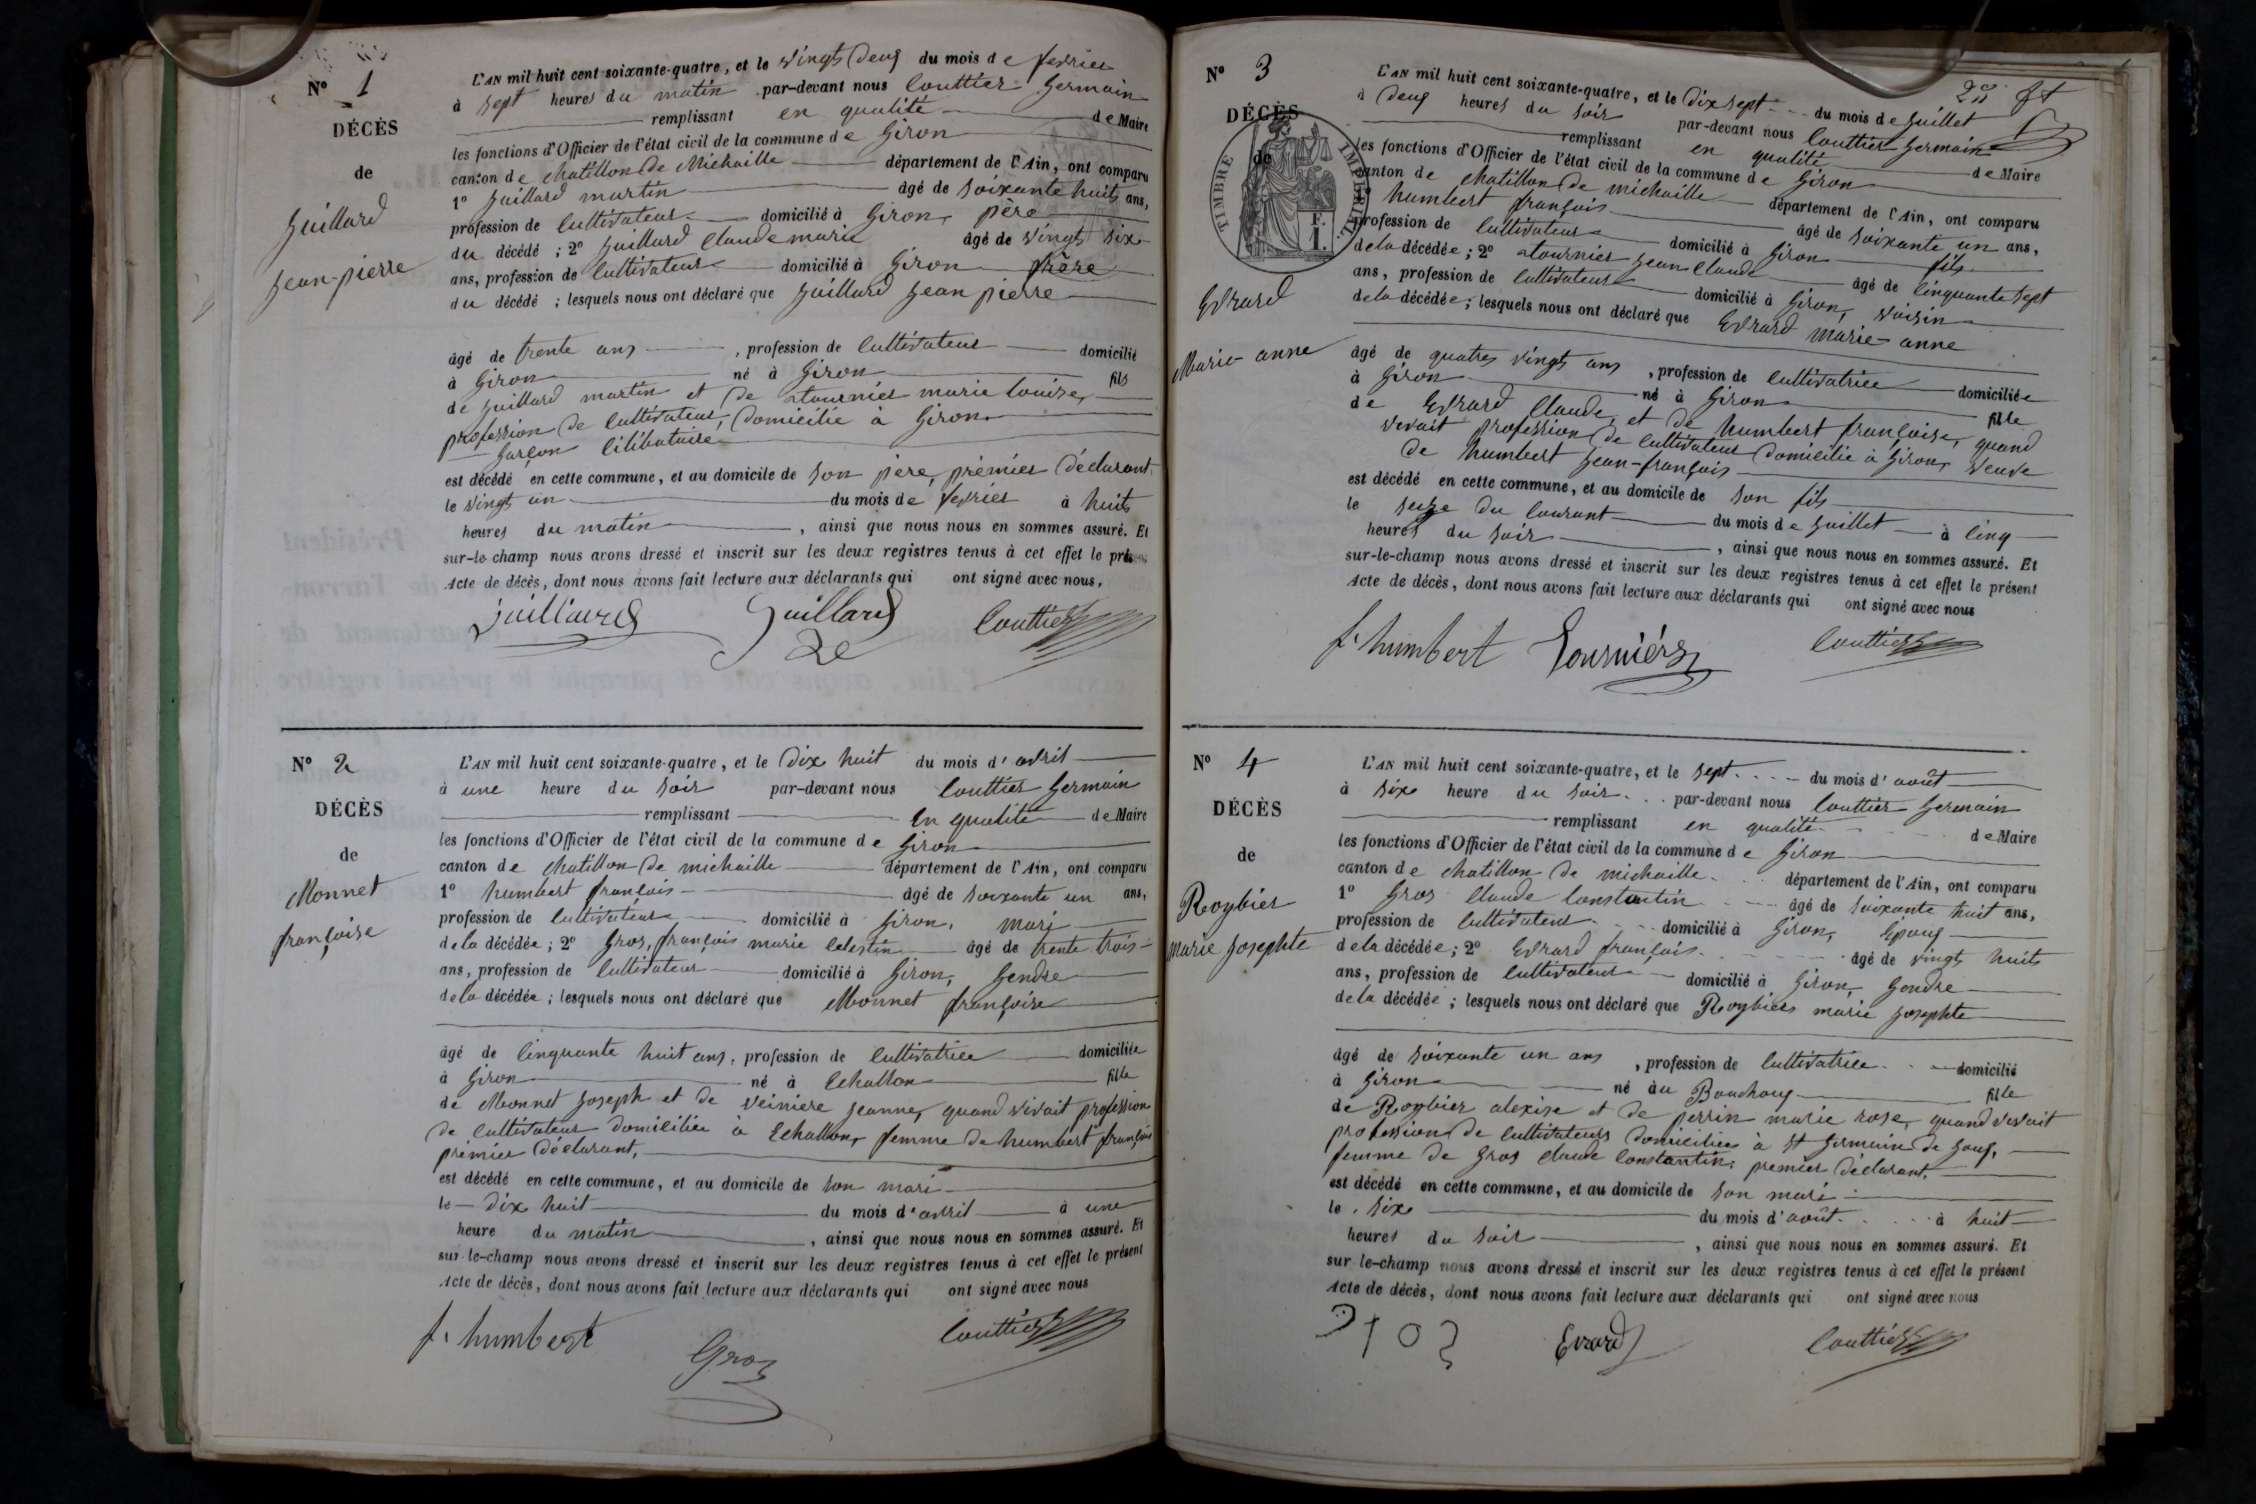 N° 1
DÉCÈS
de
Juillard
Jean-pierre
L'AN mil huit cent soixante-quatre, et le vingt deux du mois de fevrier
à sept heures du matin par-devant nous Couttier Germain
remplissant en qualité de Maire
les fonctions d'Officier de l'état civil de la commune de Giron
canton de chatillon de Michaille département de l'Ain, ont comparu
1° Juillard martin âgé de soixante huit ans,
profession de Cultivateur domicilié à Giron, père
du décédé ; 2° Juillard Claude marie âgé de vingt six
ans, profession de Cultivateur domicilié à Giron frère
du décédé ; lesquels nous ont déclaré que Juillard Jean pierre
âgé de trente ans, profession de Cultivateur domicilié
à Giron né à Giron fils
de Juillard martin et de tournier marie Louise,
profession de Cultivateur, domicilié à Giron
garçon Célibataire
est décédé en cette commune, et au domicile de son père, prémier déclarant,
le vingt un du mois de fevrier à huit
heures du matin, ainsi que nous nous en sommes assuré. Et
sur-le-champ nous avons dressé et inscrit sur les deux registres tenus à cet effet le présent
Acte de décès, dont nous avons fait lecture aux déclarants qui ont signé avec nous,
Juillard Juillard Couttier
N° 2
DÉCÈS
de
Monnet
françoise
L'AN mil huit cent soixante-quatre, et le dix huit du mois d'avril
à une heure du soir par-devant nous Couttier Germain
remplissant en qualité de Maire
les fonctions d'Officier de l'état civil de la commune de Giron
canton de chatillon de michaille département de l'Ain, ont comparu
1° humbert françois âgé de soixante un ans,
profession de Cultivateur domicilié à Giron, mari
de la décédée ; 2° Gros, françois marie Celestin âgé de trente trois
ans, profession de Cultivateur domicilié à Giron, Gendre
de la décédée ; lesquels nous ont déclaré que Monnet françoise
âgé de Cinquante huit ans, profession de Cultivatrice domiciliée
à Giron né à Echallon fille
de Monnet Joseph et de veiniere Jeanne, quand vivait profession
de Cultivateur domiciliée à Echallon, femme de humbert françois
prémier déclarant,
est décédé en cette commune, et au domicile de son mari
le dix huit du mois d'avril à une
heure du matin, ainsi que nous nous en sommes assuré. Et
sur-le-champ nous avons dressé et inscrit sur les deux registres tenus à cet effet le présent
Acte de décès, dont nous avons fait lecture aux déclarants qui ont signé avec nous
f. humbert Gros Couttier
N° 3
DÉCÈS
de
TIMBRE IMPERIAL
F.
1.
Evrard
Marie-anne
L'AN mil huit cent soixante-quatre, et le dix sept du mois de Juillet
à deux heures du soir par-devant nous Couttier Germain
remplissant en qualité de Maire
les fonctions d'Officier de l'état civil de la commune de Giron
canton de chatillon de michaille département de l'Ain, ont comparu
1° humbert françois âgé de soixante un ans,
profession de Cultivateur domicilié à Giron fils
de la décédée ; 2° tournier Jean Claude âgé de Cinquante sept
ans, profession de Cultivateur domicilié à Giron, voisin
de la décédée ; lesquels nous ont déclaré que Evrard marie-anne
âgé de quatre vingt ans, profession de Cultivatrice domiciliée
à Giron né à Giron fille
de Evrard Claude, et de humbert françoise, quand
vivait profession de Cultivateur domicilié à Giron, veuve
de humbert Jean-françois
est décédé en cette commune, et au domicile de son fils
le seize du Courant du mois de Juillet à Cinq
heures du soir, ainsi que nous nous en sommes assuré. Et
sur-le-champ nous avons dressé et inscrit sur les deux registres tenus à cet effet le présent
Acte de décès, dont nous avons fait lecture aux déclarants qui ont signé avec nous
f. humbert tourniér Couttier
N° 4
DÉCÈS
de
Roybier
marie Josephte
L'AN mil huit cent soixante-quatre, et le sept du mois d'août
à six heure du soir par-devant nous Couttier Germain
remplissant en qualité de Maire
les fonctions d'Officier de l'état civil de la commune de Giron
canton de chatillon de michaille département de l'Ain, ont comparu
1° Gros Claude Constantin âgé de soixante huit ans,
profession de Cultivateur domicilié à Giron, Epoux
de la décédée ; 2° Evrard françois âgé de vingt huit
ans, profession de Cultivateur domicilié à Giron, Gendre
de la décédée ; lesquels nous ont déclaré que Roybier marie Josephte
âgé de soixante un ans, profession de Cultivatrice domicilié
à Giron né au Bouchoux fille
de Roybier alexise et de perrin marie rose, quand vivait
profession de Cultivateurs domiciliée à St Germain de Joux,
femme de Gros Claude Constantin, premier déclarant,
est décédé en cette commune, et au domicile de son mari
le six du mois d'août à huit
heures du soir, ainsi que nous nous en sommes assuré. Et
sur-le-champ nous avons dressé et inscrit sur les deux registres tenus à cet effet le présent
Acte de décès, dont nous avons fait lecture aux déclarants qui ont signé avec nous
Evrard Couttier